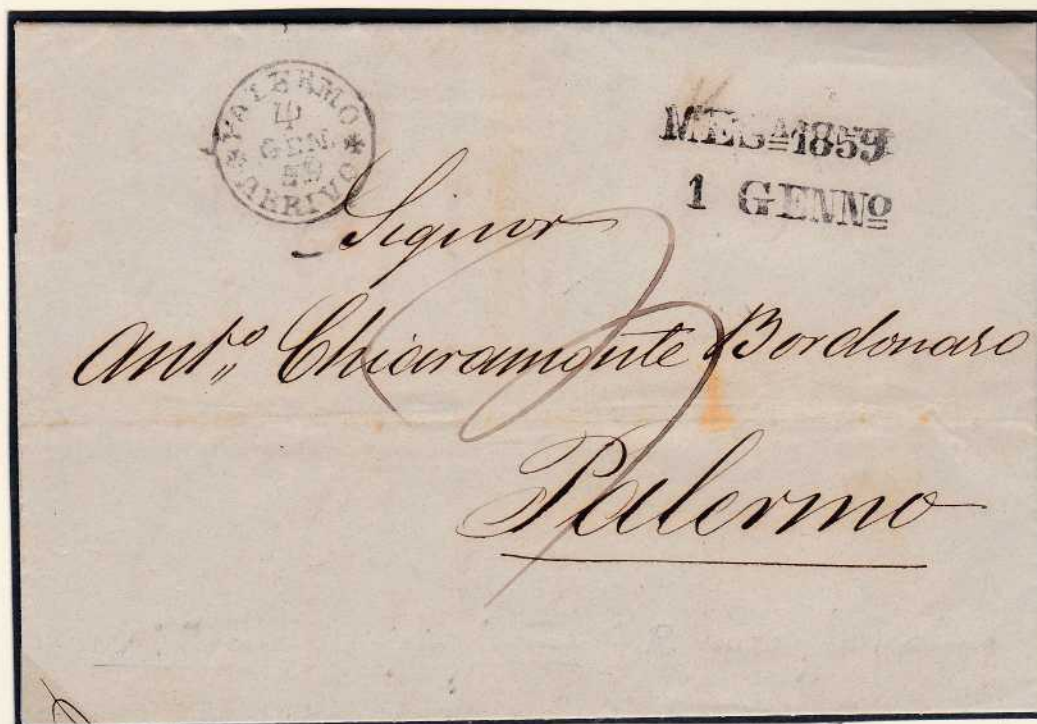 PALERMO
4
GEN.
59
* ARRIVO *
MESA 1859
1 GENNº
Signor
Antº Chiaramonte Bordonaro
Palermo